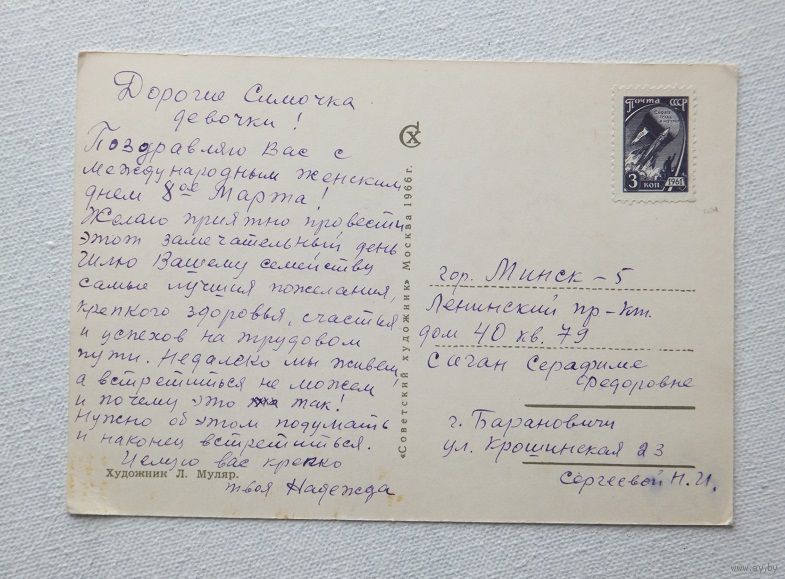 Дорогие Симочка
девочки!
Поздравляю Вас с
международным женским
днем 8ое Марта!
Желаю приятно провести
этот замечательный день
Шлю Вашему семейству
самые лучшия пожелания,
крепкого здоровья, счастья
и успехов на трудовом
пути. Недалеко мы живем,
а встретиться не можем
и почему это так!
Нужно об этом подумать
и наконец встретиться.
Целую вас крепко
твоя Надежда
Художник Л. Муляр.
«Советский художник» Москва 1966 г.
СХ
Почта СССР
3 коп
1961
гор. Минск - 5
Ленинский пр-кт.
дом 40 кв. 79
Саган Серафиме
Федоровне
г. Барановичи
ул. Крошинская 23
Сергеевой Н. И.
www.ay.by